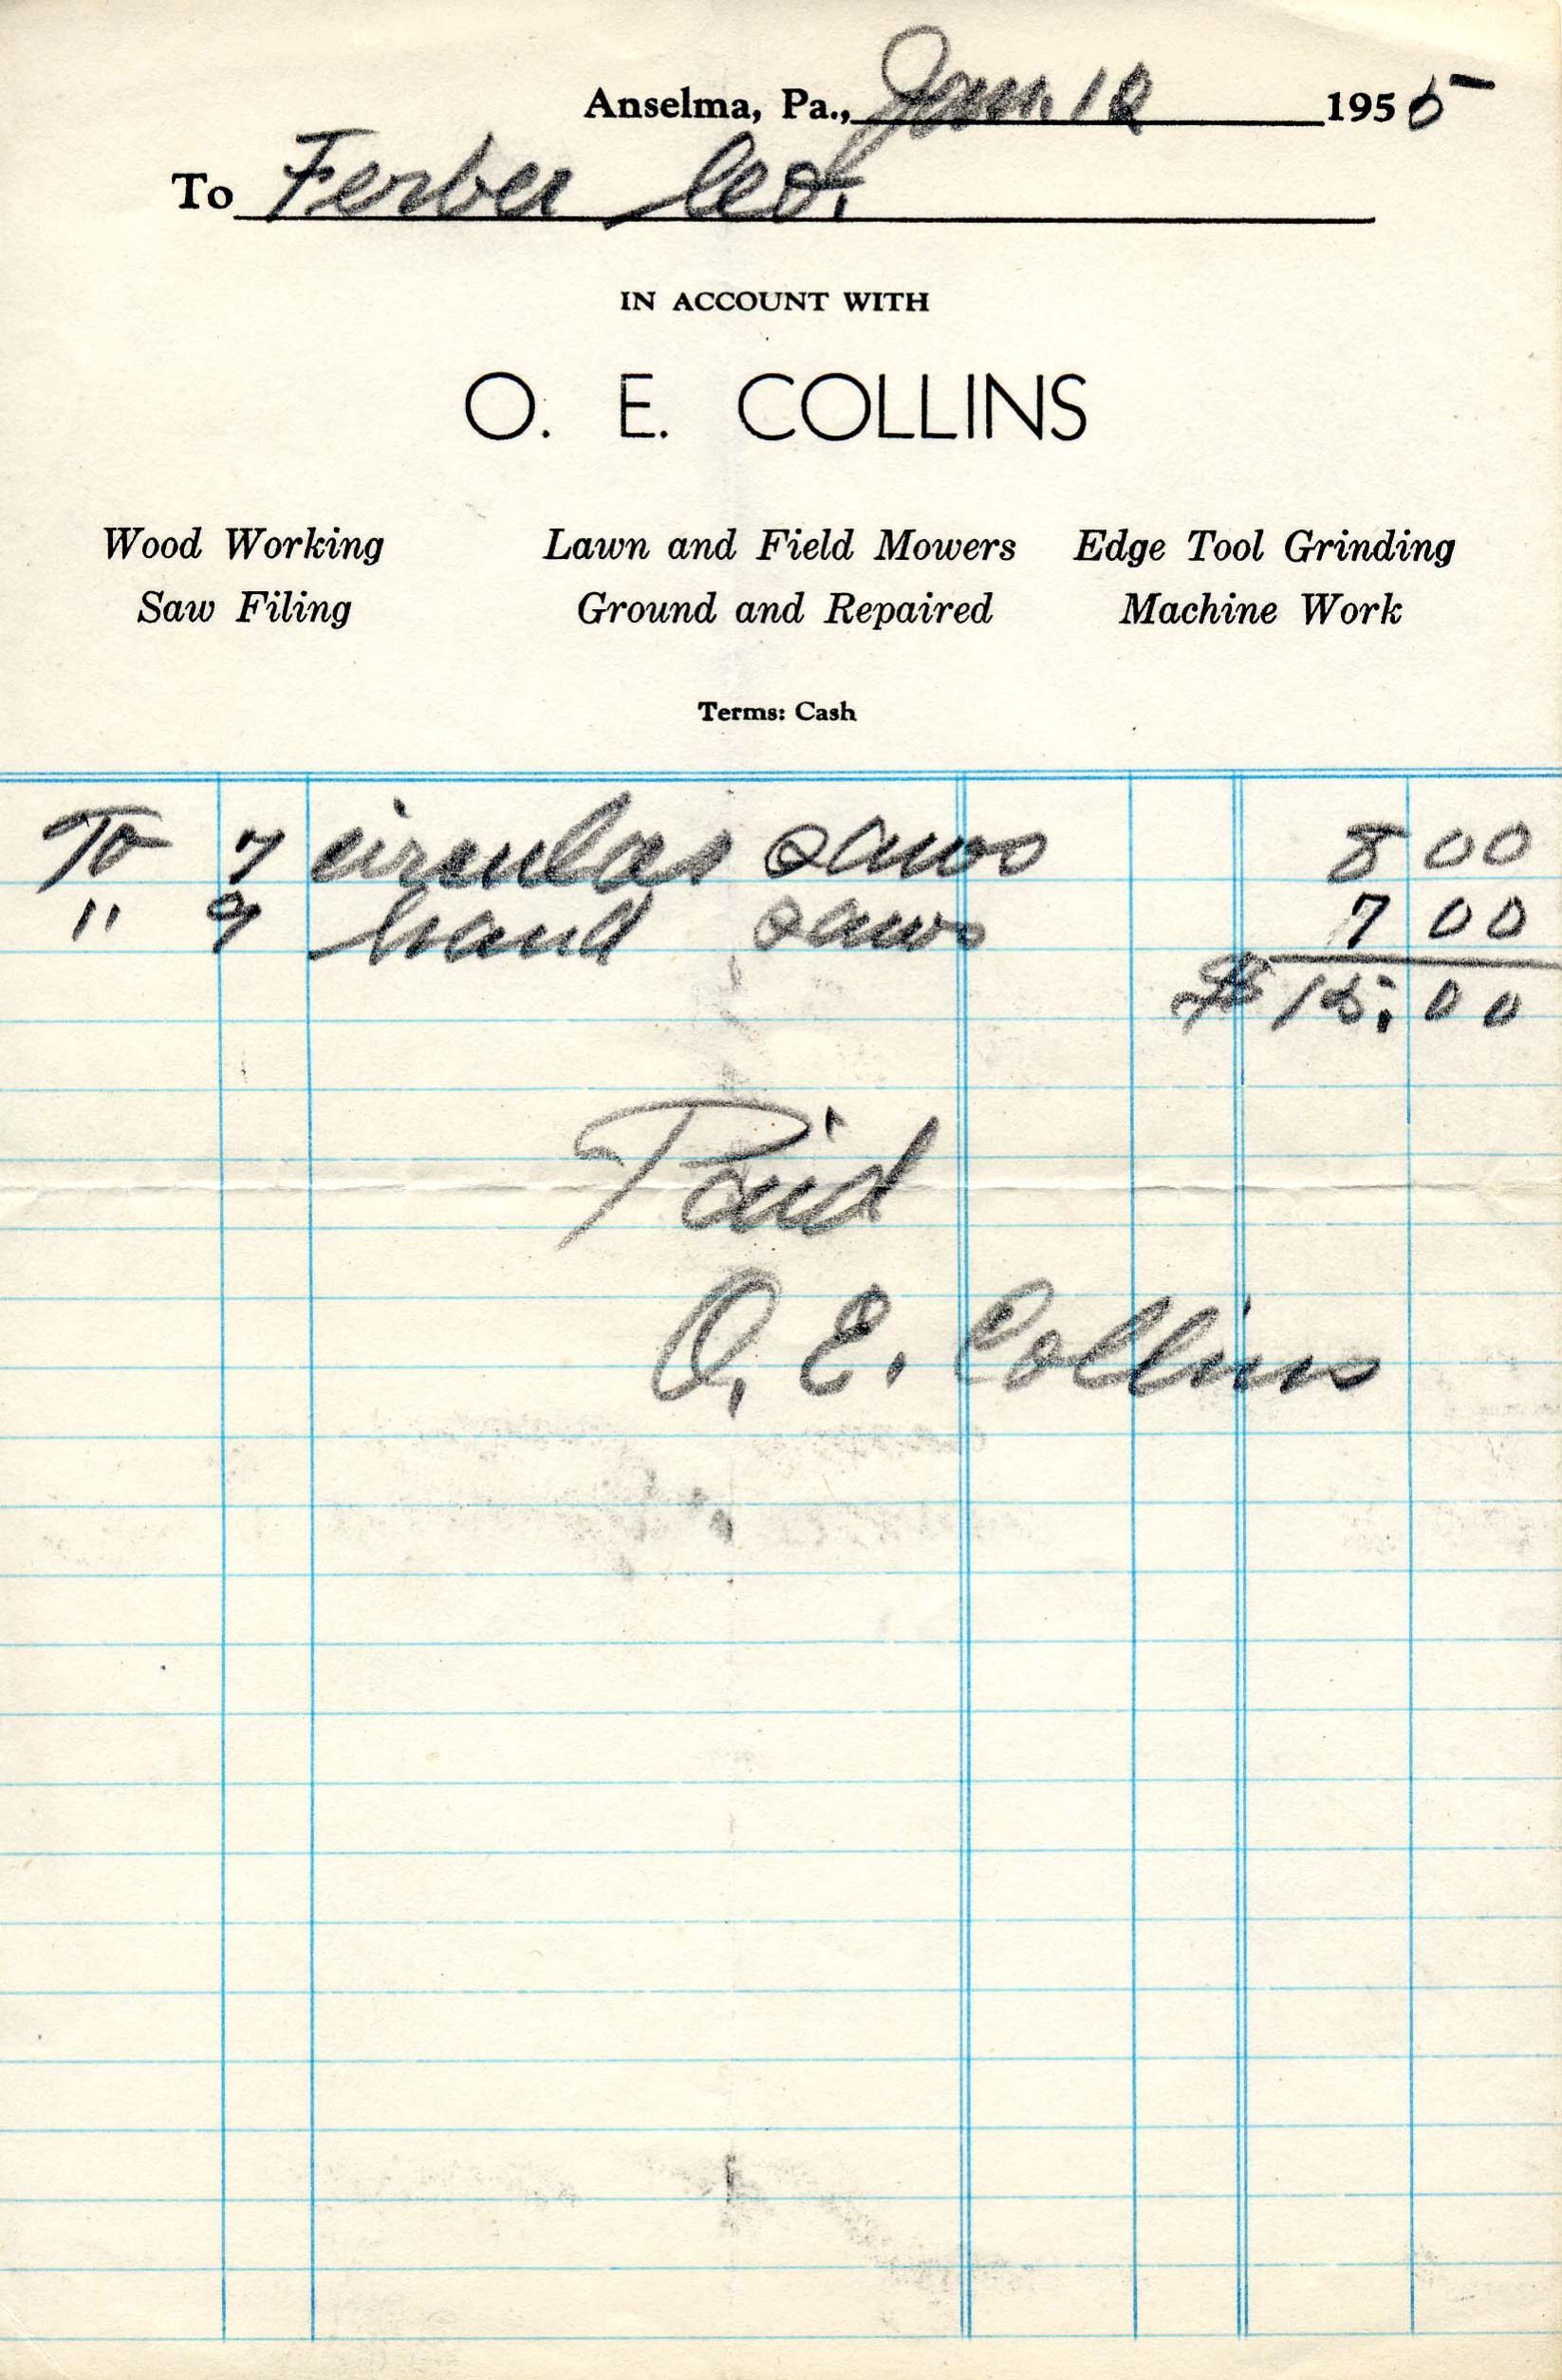 Anselma, Pa., Jan. 1955
To Ferber
IN ACCOUNT WITH
O. E. COLLINS
Wood Working Lawn and Field Mowers Edge Tool Grinding
Saw Filing Ground and Repaired Machine Work
Terms: Cash
To 7 circular saws 8 00
" hand saws 7 00
$ 15.00
Paid
O. E. Collins